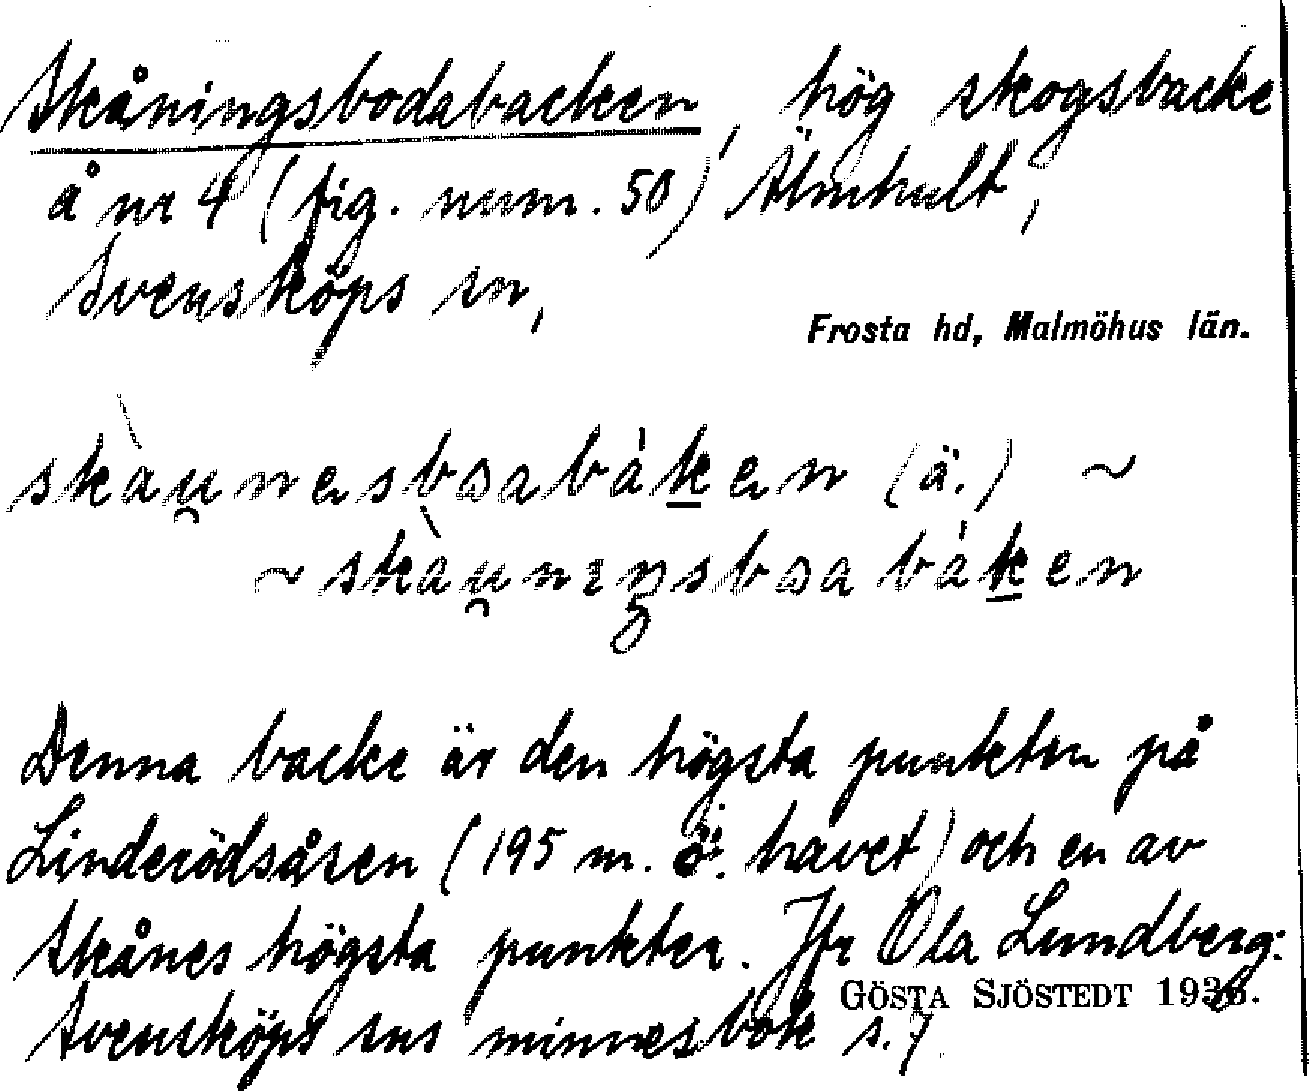 Skåningsbodabacken, hög skogsbacke
å nr 4 (fig. num. 50) Älmhult,
Svensköps sn,
Frosta hd, Malmöhus län.
(ä.) ~
~
Denna backe är den högsta punkten på
Linderödsåsen (195 m. ö. havet) och en av
Skånes högsta punkter. Jfr Ola Lundberg:
GÖSTA SJÖSTEDT 1936.
Svensköps sns minnesbok s. 7